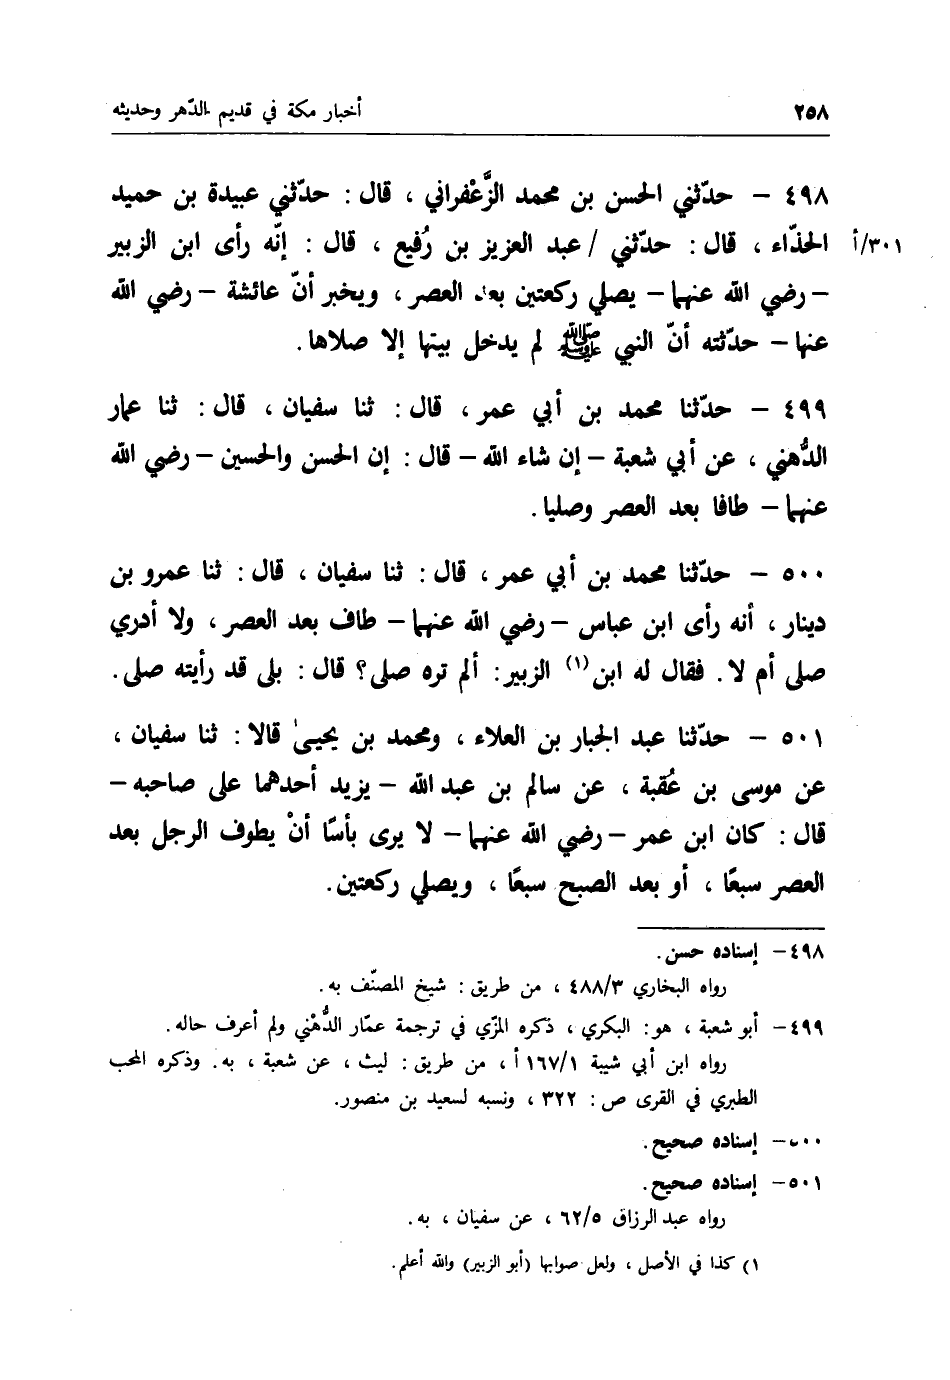 ٢٥٨ أخبار مكة في قديم الدّهر وحديثه
٤٩٨ – حدّثني الحسن بن محمد الزَّعْفراني ، قال : حدّثني عبيدة بن حميد
٣٠١/أ الحذّاء ، قال : حدّثني / عبد العزيز بن رُفيع ، قال : إنّه رأى ابن الزبير
– رضي الله عنهما – يصلي ركعتين بعد العصر ، ويخبر أنّ عائشة – رضي الله
عنها – حدّثته أنّ النبي ﷺ لم يدخل بيتها إلا صلاها .
٤٩٩ – حدّثنا محمد بن أبي عمر ، قال : ثنا سفيان ، قال : ثنا عمار
الدُّهني ، عن أبي شعبة – إن شاء الله – قال : إن الحسن والحسين – رضي الله
عنهما – طافا بعد العصر وصليا .
٥٠٠ – حدّثنا محمد بن أبي عمر ، قال : ثنا سفيان ، قال : ثنا عمرو بن
دينار ، أنه رأى ابن عباس – رضي الله عنهما – طاف بعد العصر ، ولا أدري
صلى أم لا . فقال له ابن (١) الزبير : ألم تره صلى ؟ قال : بلى قد رأيته صلى .
٥٠١ – حدّثنا عبد الجبار بن العلاء ، ومحمد بن يحيىٰ قالا : ثنا سفيان ،
عن موسى بن عُقبة ، عن سالم بن عبد الله – يزيد أحدهما على صاحبه –
قال : كان ابن عمر – رضي الله عنهما – لا يرى بأسًا أنْ يطوف الرجل بعد
العصر سبعًا ، أو بعد الصبح سبعًا ، ويصلي ركعتين .
٤٩٨ – إسناده حسن .
رواه البخاري ٤٨٨/٣ ، من طريق : شيخ المصنّف به .
٤٩٩ – أبو شعبة ، هو : البكري ، ذكره المزّي في ترجمة عمّار الدُّهْني ولم أعرف حاله .
رواه ابن أبي شيبة ١٦٧/١ أ ، من طريق : ليث ، عن شعبة ، به . وذكره المحب
الطبري في القرى ص : ٣٢٢ ، ونسبه لسعيد بن منصور .
٥٠٠ – إسناده صحيح .
٥٠١ – إسناده صحيح .
رواه عبد الرزاق ٦٢/٥ ، عن سفيان ، به .
١) كذا في الأصل ، ولعل صوابها (أبو الزبير) والله أعلم .